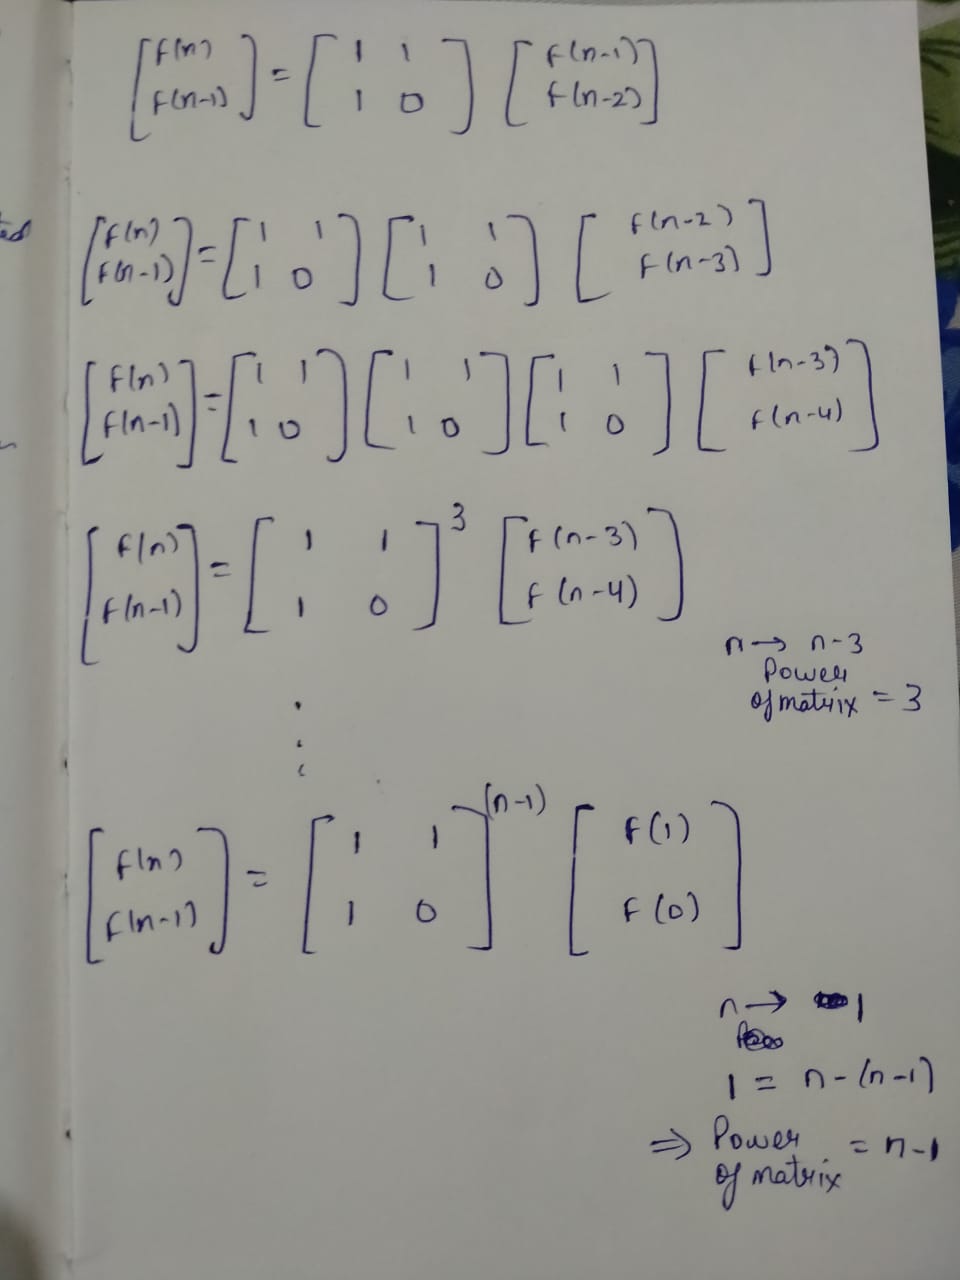 [f(n) f(n-1)] = [1 1 1 0] [f(n-1) f(n-2)]
[f(n) f(n-1)] = [1 1 1 0] [1 1 1 0] [f(n-2) f(n-3)]
[f(n) f(n-1)] = [1 1 1 0] [1 1 1 0] [1 1 1 0] [f(n-3) f(n-4)]
[f(n) f(n-1)] = [1 1 1 0]^3 [f(n-3) f(n-4)]
n → n-3
Power
of matrix = 3
⋮
[f(n) f(n-1)] = [1 1 1 0]^(n-1) [f(1) f(0)]
n → 1
1 = n-(n-1)
⇒ Power
of matrix = n-1